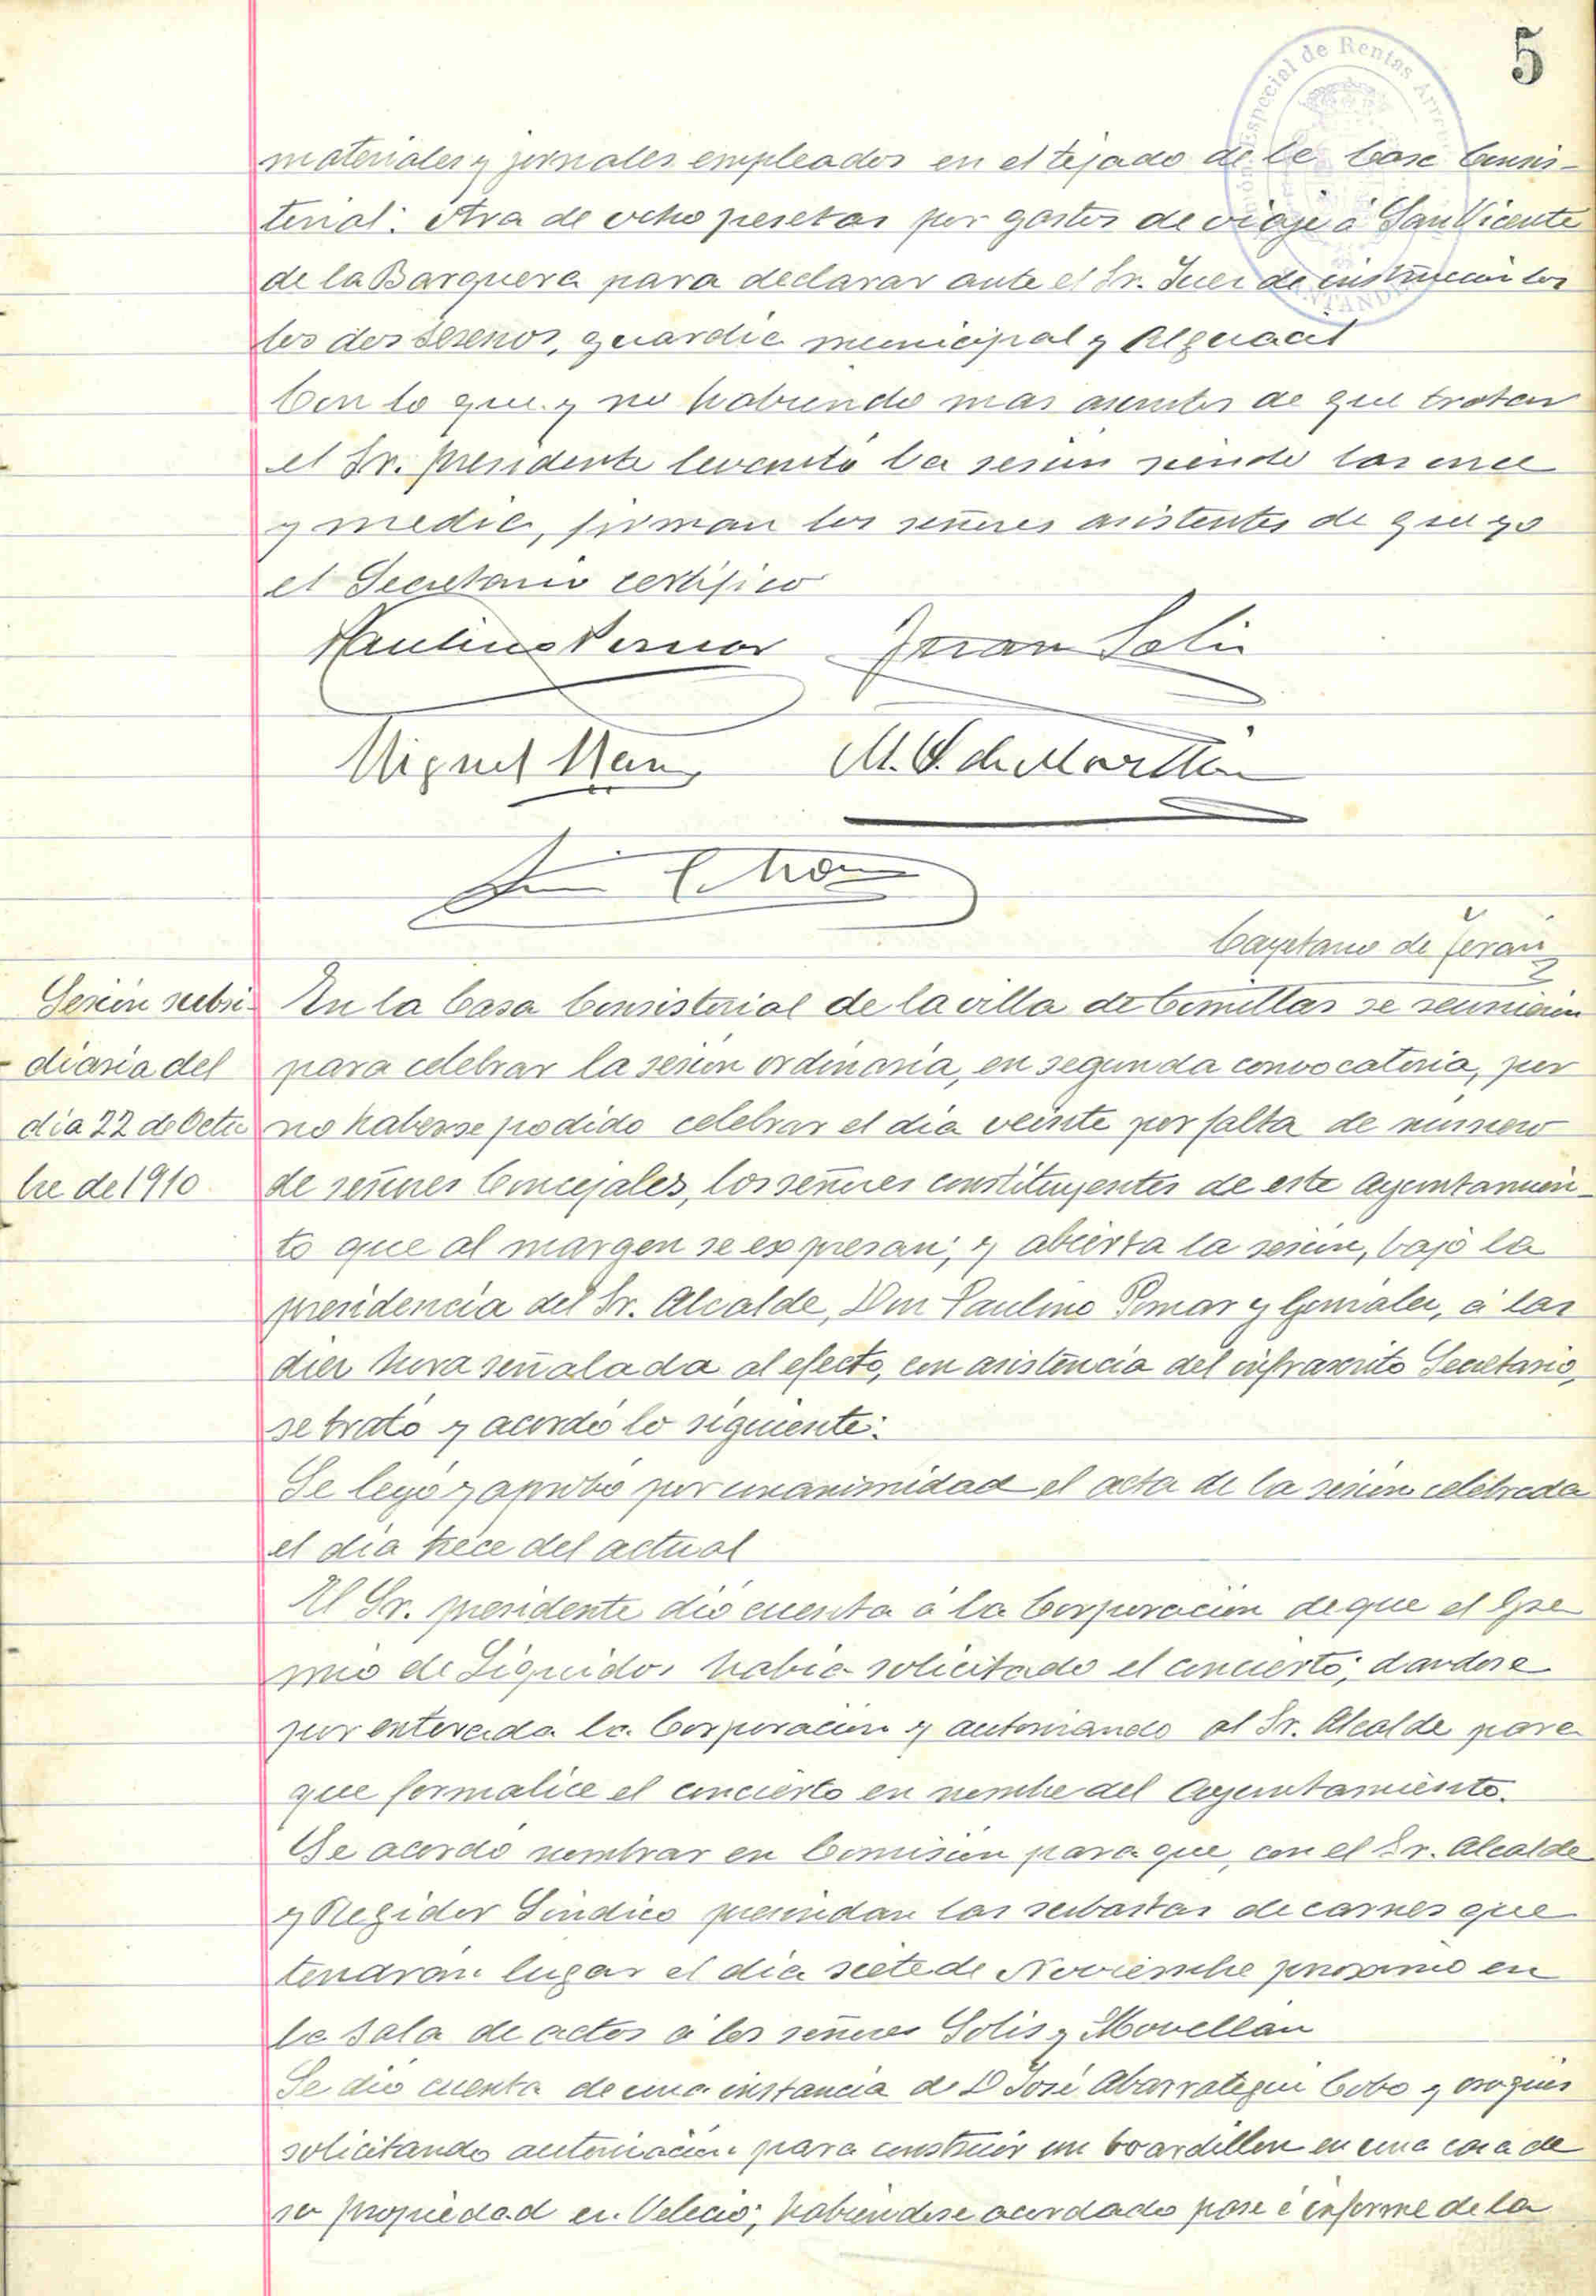 5
Especial de Rentas Arre
SANTANDER
materiales y jornales empleados en el tejado de la Casa Consis-
torial: Otra de ocho pesetas por gastos de viaje á San Vicente
de la Barquera para declarar ante el Sr. Juez de instrucción los
los dos serenos, guardia municipal y Alguacil
Con lo que y no habiendo mas asuntos de que tratar
el Sr. presidente levantó la sesión siendo las once
y media, firman los señores asistentes de que yo
el Secretario certifico
Paulino Pomar Juan Solis
Miguel M. S. de Movellan
Cayetano de Terán
Sesión subsi-
diaria del
dia 22 de Octu
bre de 1910
En la Casa Consistorial de la villa de Comillas se reunieron
para celebrar la sesión ordinaria, en segunda convocatoria, por
no haberse podido celebrar el dia veinte por falta de numero
de señores Concejales, los señores constituyentes de este Ayuntamien-
to que al margen se expresan; y abierta la sesión, bajo la
presidencia del Sr. Alcalde, Don Paulino Pomar y Gonzalez, á las
diez hora señalada al efecto, con asistencia del infrascrito Secretario,
se trató y acordó lo siguiente:
Se leyó y aprobó por unanimidad el acta de la sesión celebrada
el dia trece del actual
El Sr. presidente dió cuenta á la Corporación de que el Gre
mio de Liquidos habia solicitado el concierto; dandose
por enterada la Corporación y autorizando al Sr. Alcalde para
que formalice el concierto en nombre del Ayuntamiento.
Se acordó nombrar en Comisión para que, con el Sr. Alcalde
y Regidor Sindico presidan las subastas de carnes que
tendrán lugar el dia siete de Noviembre proximo en
la sala de actos á los señores Solis y Movellan
Se dió cuenta de una instancia de D José Abarrategui Cobo y croquis
solicitando autorización para construir un boardillon en una casa de
su propiedad en Velecio; habiendose acordado pase á informe de la